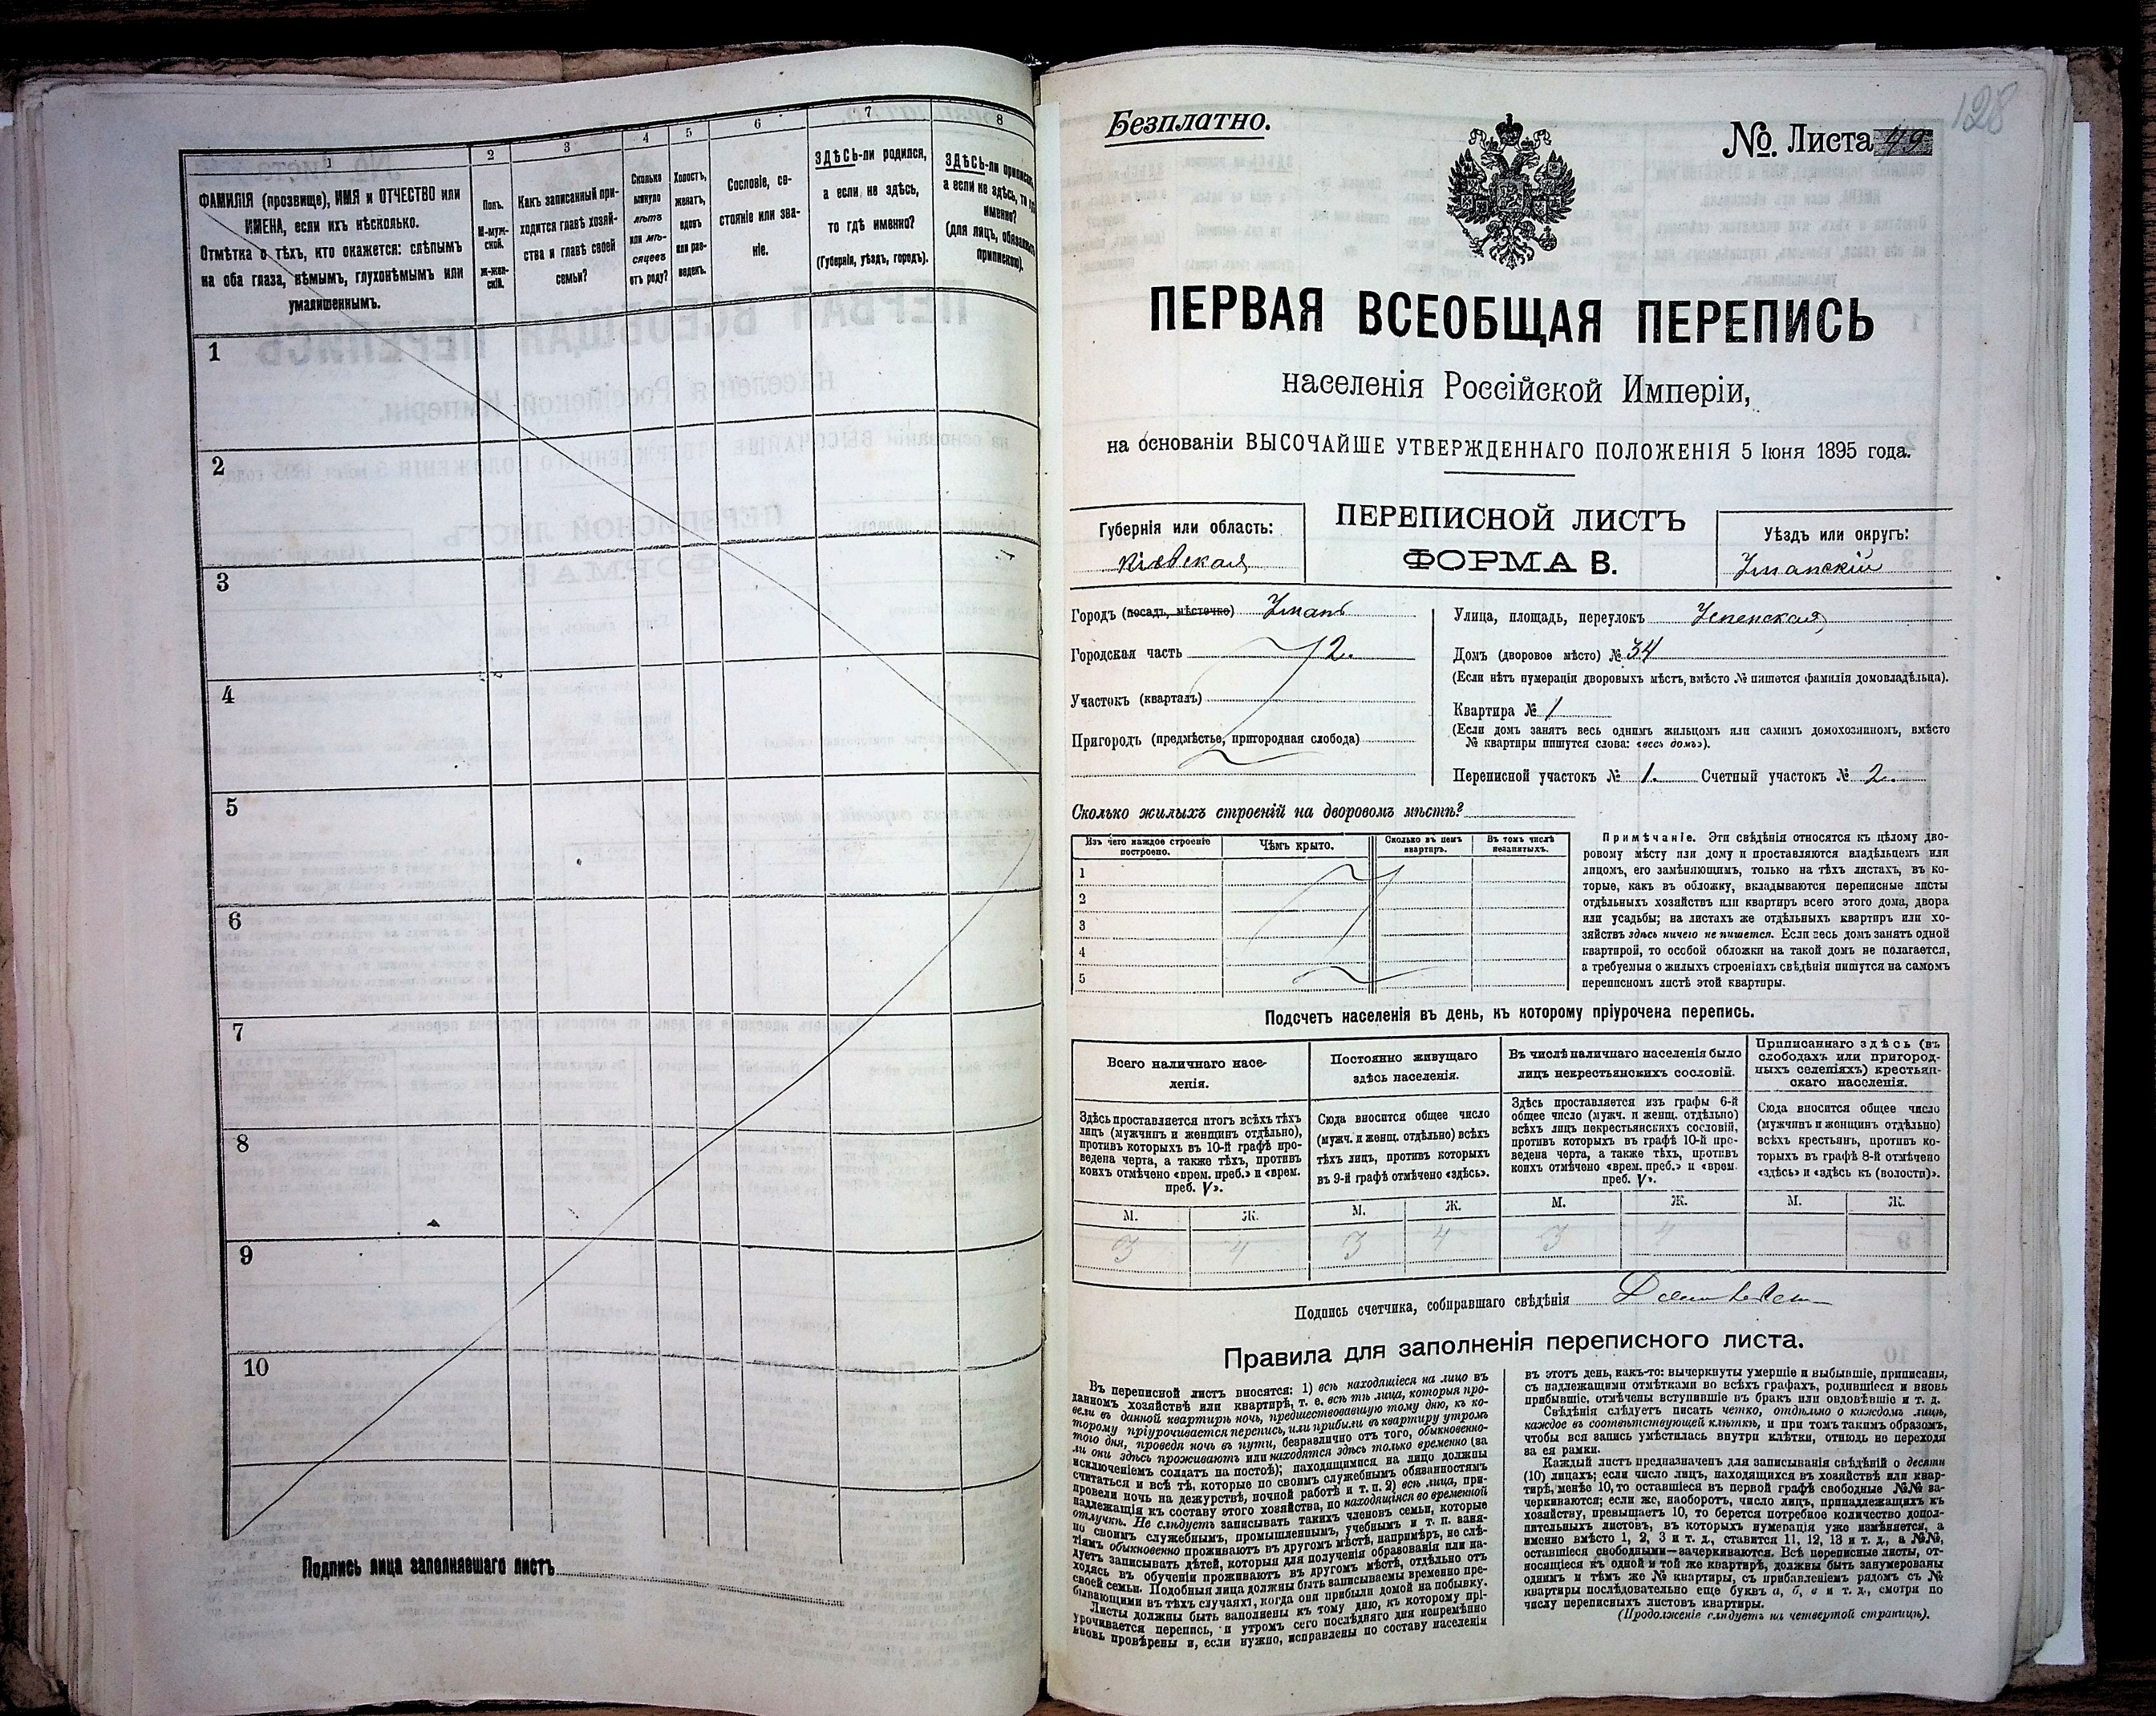 1
ФАМИЛІЯ (прозвище), ИМЯ и ОТЧЕСТВО или
ИМЕНА, если ихъ нѣсколько.
Отмѣтка о тѣхъ, кто окажется: слѣпымъ
на оба глаза, нѣмымъ, глухонѣмымъ или
умалишеннымъ.
2
Полъ.
М-муж-
ской.
Ж-жен-
скій.
3
Какъ записанный при-
ходится главѣ хозяй-
ства и главѣ своей
семьи?
4
Сколько
минуло
лѣтъ
или мѣ-
сяцевъ
отъ роду?
5
Холостъ,
женатъ,
вдовъ
или раз-
веденъ.
6
Сословіе, со-
стояніе или зва-
ніе.
7
ЗДѢСЬ-ли родился,
а если не здѣсь,
то гдѣ именно?
(Губернія, уѣздъ, городъ).
8
ЗДѢСЬ-ли приписанъ,
а если не здѣсь, то гдѣ
именно?
(для лицъ, обязанныхъ
припискою).
1
2
3
4
5
6
7
8
9
10
Подпись лица заполнявшаго листъ
128
Безплатно.
№ Листа 49
ПЕРВАЯ ВСЕОБЩАЯ ПЕРЕПИСЬ
населенія Россійской Имперіи,
на основаніи ВЫСОЧАЙШЕ УТВЕРЖДЕННАГО ПОЛОЖЕНІЯ 5 Іюня 1895 года.
Губернія или область:
Кіевская
ПЕРЕПИСНОЙ ЛИСТЪ
ФОРМА В.
Уѣздъ или округъ:
Уманскій
Городъ (посадъ, мѣстечко) Умань
Городская часть 2.
Участокъ (кварталъ)
Пригородъ (предмѣстье, пригородная слобода)
Улица, площадь, переулокъ Успенская
Домъ (дворовое мѣсто) № 34
(Если нѣтъ нумераціи дворовыхъ мѣстъ, вмѣсто № пишется фамилія домовладѣльца).
Квартира № 1
(Если домъ занятъ весь однимъ жильцомъ или самимъ домохозяиномъ, вмѣсто
№ квартиры пишутся слова: «весь домъ»).
Переписной участокъ № 1. Счетный участокъ № 2.
Сколько жилыхъ строеній на дворовомъ мѣстѣ?
Изъ чего каждое строеніе
построено.
Чѣмъ крыто.
Сколько въ немъ
квартиръ.
Въ томъ числѣ
незанятыхъ.
1
2
3
4
5
Примѣчаніе. Эти свѣдѣнія относятся къ цѣлому дво-
ровому мѣсту или дому и проставляются владѣльцемъ или
лицомъ, его замѣняющимъ, только на тѣхъ листахъ, въ ко-
торые, какъ въ обложку, вкладываются переписные листы
отдѣльныхъ хозяйствъ или квартиръ всего этого дома, двора
или усадьбы; на листахъ же отдѣльныхъ квартиръ или хо-
зяйствъ здѣсь ничего не пишется. Если весь домъ занятъ одной
квартирой, то особой обложки на такой домъ не полагается,
а требуемыя о жилыхъ строеніяхъ свѣдѣнія пишутся на самомъ
переписномъ листѣ этой квартиры.
Подсчетъ населенія въ день, къ которому пріурочена перепись.
Всего наличнаго насе-
ленія.
Здѣсь проставляется итогъ всѣхъ тѣхъ
лицъ (мужчинъ и женщинъ отдѣльно),
противъ которыхъ въ 10-й графѣ про-
ведена черта, а также тѣхъ, противъ
коихъ отмѣчено «врем. преб.» и «врем.
преб. V».
Постоянно живущаго
здѣсь населенія.
Сюда вносится общее число
(мужч. и женщ. отдѣльно) всѣхъ
тѣхъ лицъ, противъ которыхъ
въ 9-й графѣ отмѣчено «здѣсь».
Въ числѣ наличнаго населенія было
лицъ некрестьянскихъ сословій.
Здѣсь проставляется изъ графы 6-й
общее число (мужч. и женщ. отдѣльно)
всѣхъ лицъ некрестьянскихъ сословій,
противъ которыхъ въ графѣ 10-й про-
ведена черта, а также тѣхъ, противъ
коихъ отмѣчено «врем. преб.» и «врем.
преб. V».
Приписаннаго здѣсь (въ
слободахъ или пригород-
ныхъ селеніяхъ) крестьян-
скаго населенія.
Сюда вносится общее число
(мужчинъ и женщинъ отдѣльно)
всѣхъ крестьянъ, противъ ко-
торыхъ въ графѣ 8-й отмѣчено
«здѣсь» и «здѣсь къ (волости)».
М. Ж. М. Ж. М. Ж. М. Ж.
3 4 3 4 3 4
Подпись счетчика, собиравшаго свѣдѣнія
Правила для заполненія переписного листа.
Въ переписной листъ вносятся: 1) всѣ находящіеся на лицо въ
данномъ хозяйствѣ или квартирѣ, т. е. всѣ тѣ лица, которыя про-
вели въ данной квартирѣ ночь, предшествовавшую тому дню, къ ко-
торому пріурочивается перепись, или прибыли въ квартиру утромъ
того дня, проведя ночь въ пути, безразлично отъ того, обыкновенно-
ли они здѣсь проживаютъ или находятся здѣсь только временно (за
исключеніемъ солдатъ на постоѣ); находящимися на лицо должны
считаться и всѣ тѣ, которые по своимъ служебнымъ обязанностямъ
провели ночь на дежурствѣ, ночной работѣ и т. п. 2) всѣ лица, при-
надлежащія къ составу этого хозяйства, но находящіяся во временной
отлучкѣ. Не слѣдуетъ записывать такихъ членовъ семьи, которые
по своимъ служебнымъ, промышленнымъ, учебнымъ и т. п. заня-
тіямъ обыкновенно проживаютъ въ другомъ мѣстѣ, напримѣръ, не слѣ-
дуетъ записывать дѣтей, которыя для полученія образованія или на-
ходясь въ обученіи проживаютъ въ другомъ мѣстѣ, отдѣльно отъ
своей семьи. Подобныя лица должны быть записываемы временно пре-
бывающими въ тѣхъ случаяхъ, когда они прибыли домой на побывку.
Листы должны быть заполнены къ тому дню, къ которому прі-
урочивается перепись, и утромъ сего послѣдняго дня непремѣнно
вновь провѣрены и, если нужно, исправлены по составу населенія
въ этотъ день, какъ-то: вычеркнуты умершіе и выбывшіе, приписаны,
съ надлежащими отмѣтками во всѣхъ графахъ, родившіеся и вновь
прибывшіе, отмѣчены вступившіе въ бракъ или овдовѣвшіе и т. д.
Свѣдѣнія слѣдуетъ писать четко, отдѣльно о каждомъ лицѣ,
каждое въ соотвѣтствующей клѣткѣ, и при томъ такимъ образомъ,
чтобы вся запись умѣстилась внутри клѣтки, отнюдь не переходя
за ея рамки.
Каждый листъ предназначенъ для записыванія свѣдѣній о десяти
(10) лицахъ; если число лицъ, находящихся въ хозяйствѣ или квар-
тирѣ, менѣе 10, то оставшіеся въ первой графѣ свободные №№ за-
черкиваются; если же, наоборотъ, число лицъ, принадлежащихъ къ
хозяйству, превышаетъ 10, то берется потребное количество допол-
нительныхъ листовъ, въ которыхъ нумерація уже измѣняется, а
именно вмѣсто 1, 2, 3 и т. д., ставится 11, 12, 13 и т. д., а №№,
оставшіеся свободными—зачеркиваются. Всѣ переписные листы, от-
носящіеся къ одной и той же квартирѣ, должны быть занумерованы
однимъ и тѣмъ же № квартиры, съ прибавленіемъ рядомъ съ №
квартиры послѣдовательно еще буквъ а, б, в и т. д., смотря по
числу переписныхъ листовъ квартиры.
(Продолженіе слѣдуетъ на четвертой страницѣ).